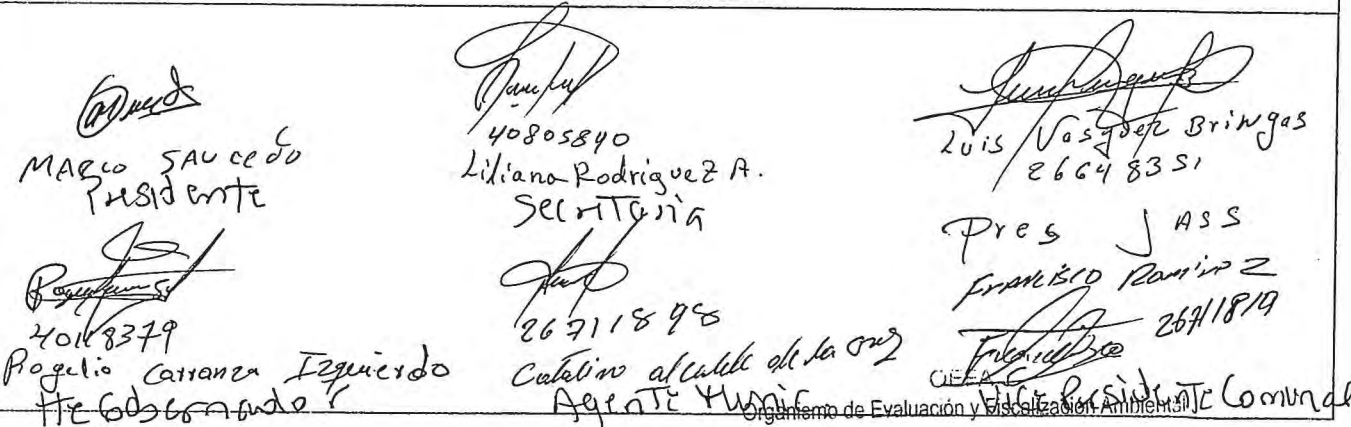 MARCO SAUCEDO
Presidente
40805840
Liliana Rodriguez A.
Secritaria
Luis Vasquez Bringas
26648351
Pres JASS
40118379
Rogelio Carranza Izquierdo
Tte Gobernador
26711898
Catalino alcalde de la cruz
Agente Munic
Francisco Ramirez
26711819
Vice Presidente Comunal
OEFA
Organismo de Evaluación y Fiscalización Ambiental